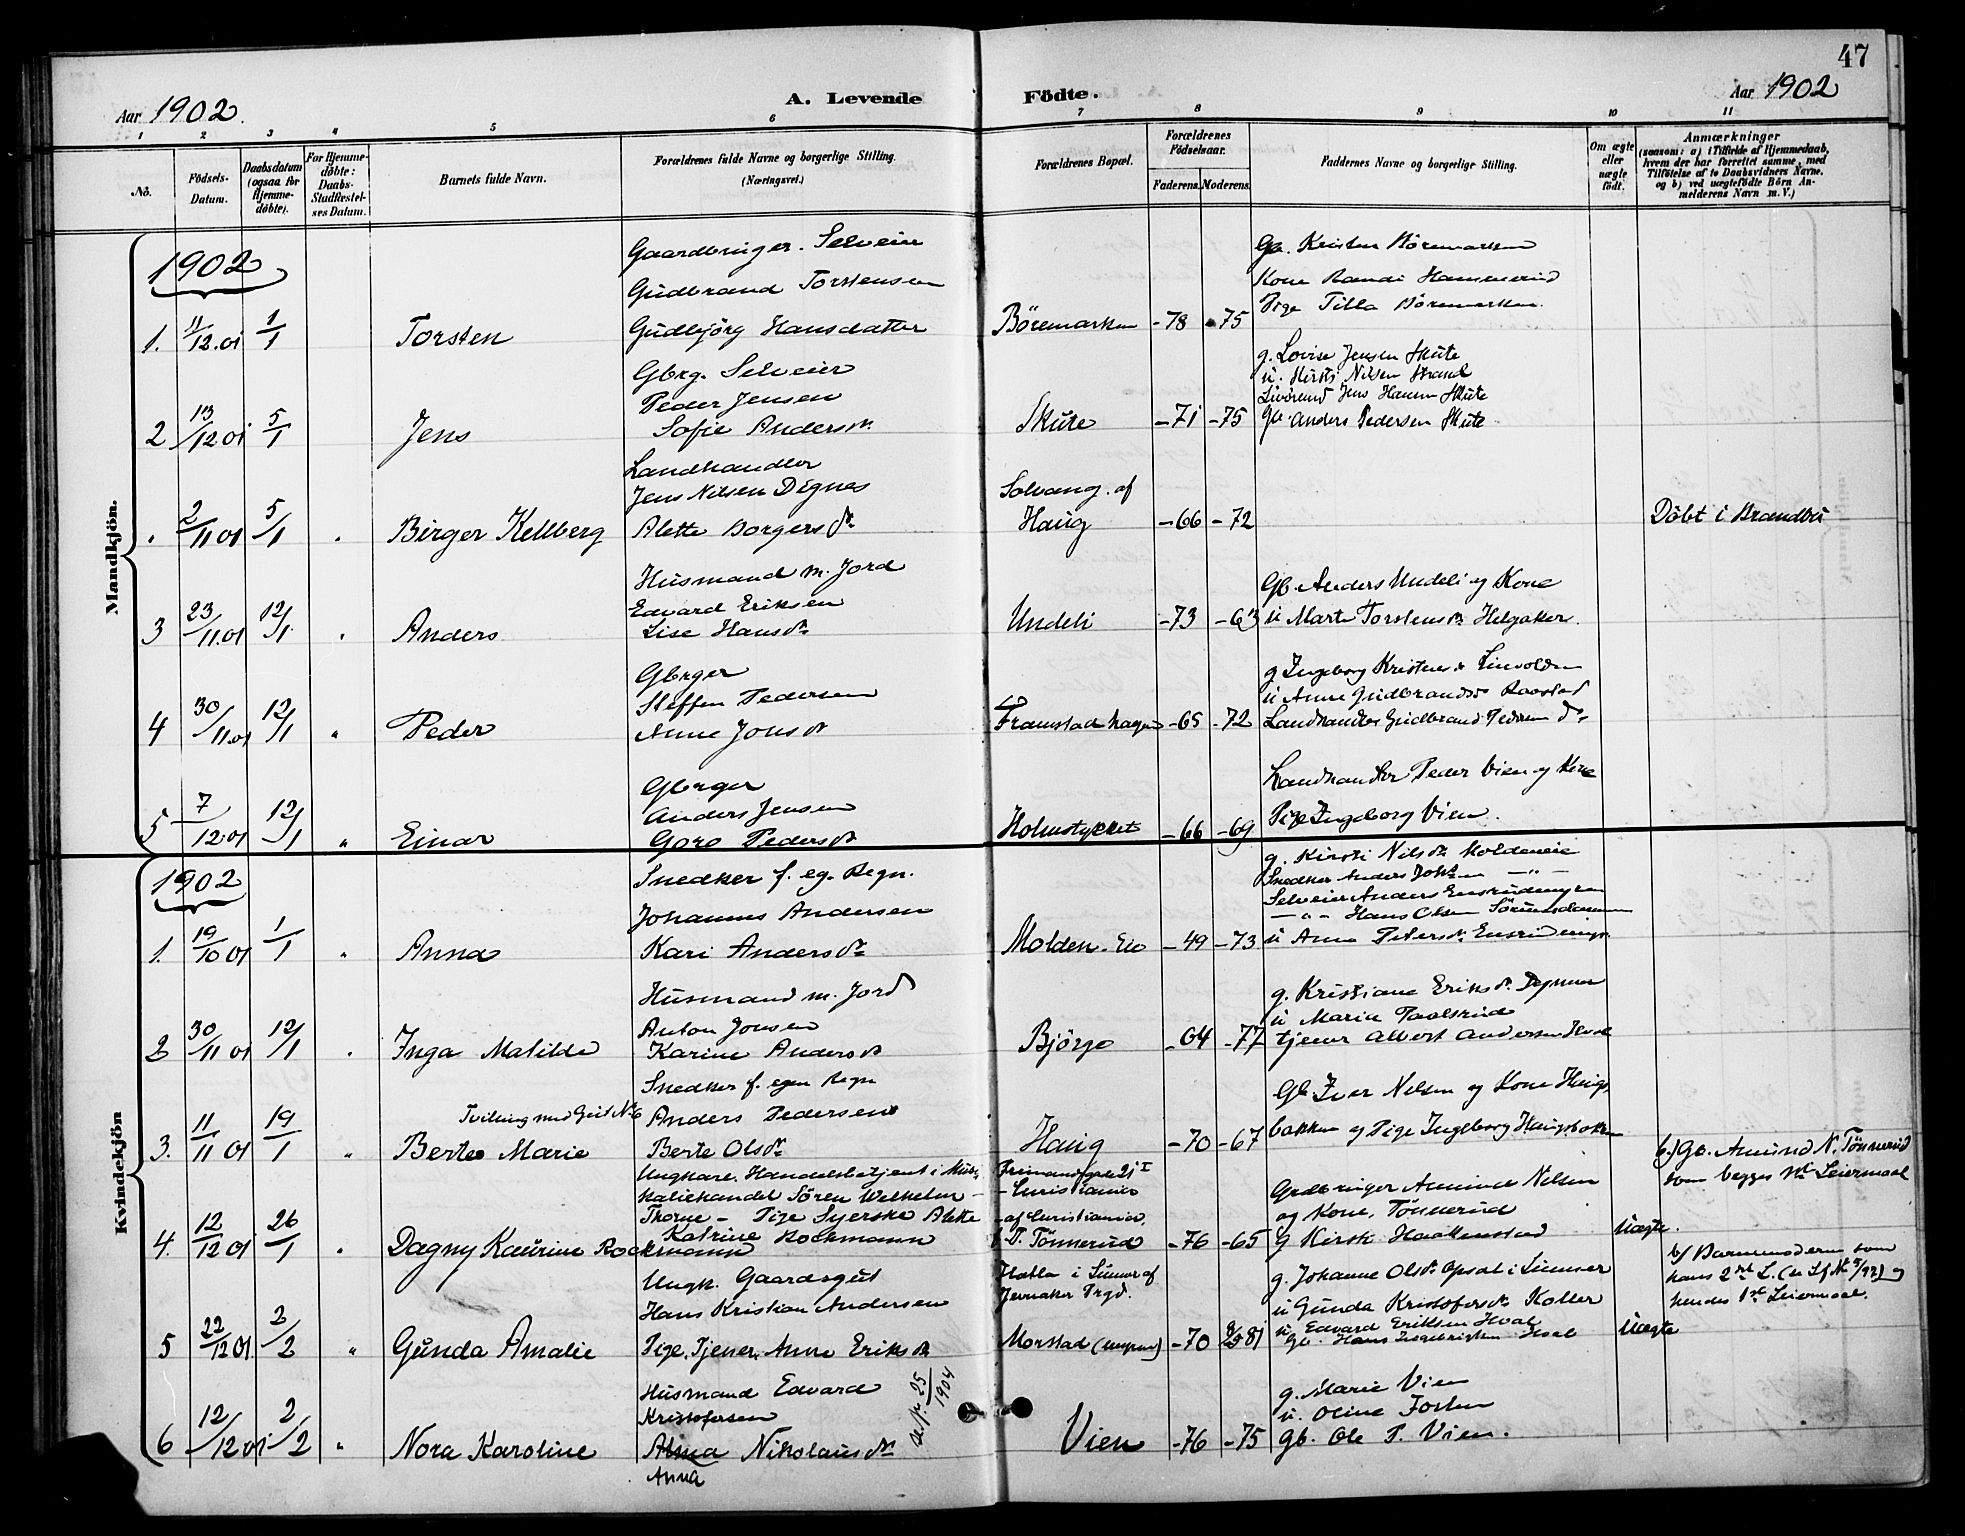 47
Aar 1902.
A. Levende Födte.
Aar 1902
1 2 3 4 5 6 7 8 9 10 11
No.
Födsels-Datum.
Daabsdatum (ogsaa for Hjemme-döbte).
For Hjemme-döbte: Daabs-Stadfæstel-ses Datum.
Barnets fulde Navn.
Forældrenes fulde Navne og borgerlige Stilling.
(Næringsvei.)
Forældrenes Bopæl.
Forældrenes Födselsaar.
Faderens. Moderens.
Faddernes Navne og borgerlige Stilling.
Om ægte eller uægte født.
Anmærkninger
(saasom: a) i Tilfælde af Hjemmedaab,
hvem der har forrettet samme, med
Tilföielse af to Daabsvidners Navne,
og b) ved uægtefödte Börn An-
melderens Navn m. V.)
Mandkjön.
1902
Gaardbruger. Selveier
Gudbrand Torstensen
1. 11/12.01 1/1 Torsten Gudbjörg Hansdatter Böremarken -78 -75
Gb. Kristen Böremarken
Kone Randi
Pige Tilla Böremarken
Gbrg. Selveier
Peder Jensen
2 13/12 01 5/1 Jens Sofie Andersdr. Skute -71 -75
g. Lovise Jensen Skute
u. Kirsti Nilsen
Jens Hansen Skute
Gb. Anders Pedersen Skute
Landhandler
Jens Nilsen Dignes
2/11 01 5/1 Birger Kellberg Alette Borgersdr. Solvang. af Haug -66 -72 Döbt i Brandbu
Husmand m. Jord
Edvard Eriksen
3 23/11.01 12/1 " Anders Lise Hansdr. Undeli -73 -63
Gb. Anders Undeli og Kone
u Mart Torstensdr. Helgaker.
Gbrger
Steffen Pedersen
4 30/11.01 12/1 " Peder Anne Jonsdr Framstadhagen -65 -72
g Ingeborg
u Anne Gudbrandsdr Raastad
Landhandler Gudbrand Pedersen do.
Gbrger
Anders Jensen
5 7/12.01 12/1 " Einar Goro Pedersdr Holmstykket -66 -69
Landhandler Peder Vien og Kone
Pige Ingeborg Vien.
Kvindekjön
1902
Snedker f. eg. Regn.
Johannes Andersen
1. 19/10 01 1/1 " Anna Kari Andersdr. Molden. Eie -49 -73
g. Kirsti Nilsdr. Moldeneie
Snedker Anders Johsen — " —
Selveier Anders Ensrudengen
— " — Hans Olsen
u Anne Petersdr.
Husmand m. Jord
Anton Jonsen
2 30/11 01 12/1 " Inga Matilde Karine Andersdr Björge -64 -77
g. Kristiane Eriksdr.
u Marie
tjener Albert Andersen Hval
Snedker f. egen Regn
Tvilling med Gut No 6 Anders Pedersen
3. 11/11 01 19/1 " Berte Marie Berte Olsdr. Haug -70 -67
Gb. Iver Nilsen og Kone Haugs-
bakken og Pige Ingeborg Haugsbakken
b.) Gb. Amund N. Tönnerud
som begges 1st Leiermaal
Ungkare. Handelsbetjent i Musi-
kaliehandel Sören Wilhelm
Thorne - Pige Syerske Alette
Katrine Rockmann
Christiania
af Christiania
f. T. Tönnerud
4. 12/12 01 26/1 " Dagny Kaurine Rockmann -76 -65
Gardbruger Amund Nilsen
og Kone, Tönnerud
g Kirsti Haakenstad Uægte.
Ungk. Gaardsgut
Hans Kristian Andersen
Hatla i Lunner af
Jevnaker Prgd.
5 22/12 01. 2/2 " Gunda Amalie Pige, Tjener, Anne Eriksdr. Morstad -70 -81
g. Johanne Olsdr. Opsal i Lunner
u Gunda Kristofersdr. Koller
u. Edvard Eriksen Hval
Gb. Hans Ingebrigtsen Hval Uægte
b/ Barnemoderen som
hans 2nd L. og
hendes 1st Leiermaal.
Husmand Edvard
Kristofersen
25/1904
6 12/12 01 2/2 " Nora Karoline Alma Nikolausdr. Vien -76 -75
Anna
g. Marie Vien
u. Oline Fosten
Gb. Ole P. Vien.